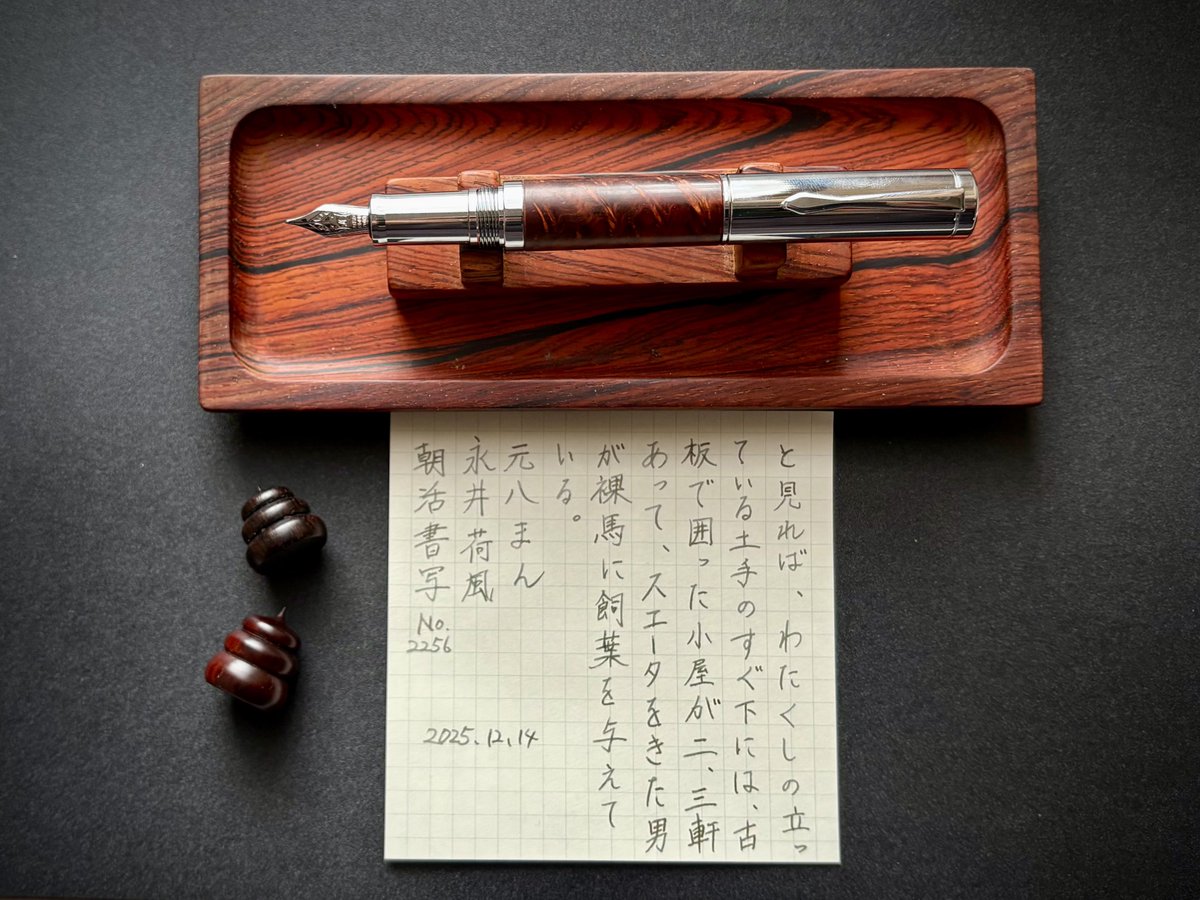 と見れば、わたくしの立っ
ている土手のすぐ下には、古
板で囲った小屋が二、三軒
あって、スエータをきた男
が裸馬に飼葉を与えて
いる。
元八まん
永井荷風
朝活書写
No.
2256
2025.12.14